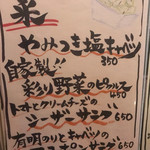 菜
やみつき塩キャベツ
350
自家製!!
彩り野菜のピクルス
450
トマトとクリームチーズの
シーザーサラダ 650
有明のりとキャベツの
650